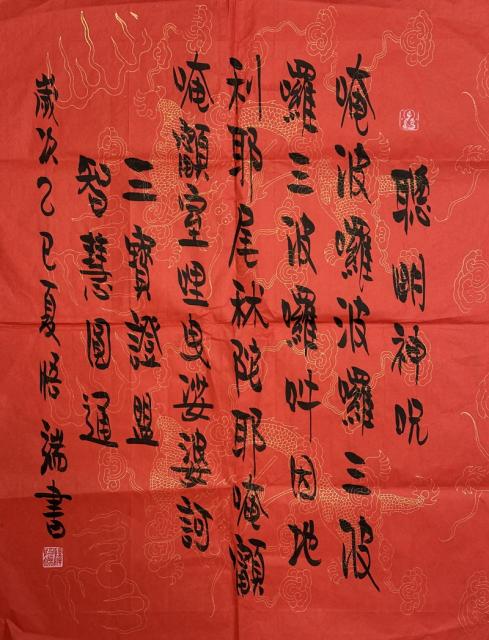 聰明神呪
唵波囉波囉三波
囉三波囉吽因地
利耶尾秫陀耶唵顪
唵顪室哩曳娑婆訶
三寶證盟
智慧圓通
歲次乙巳夏悟瑞書